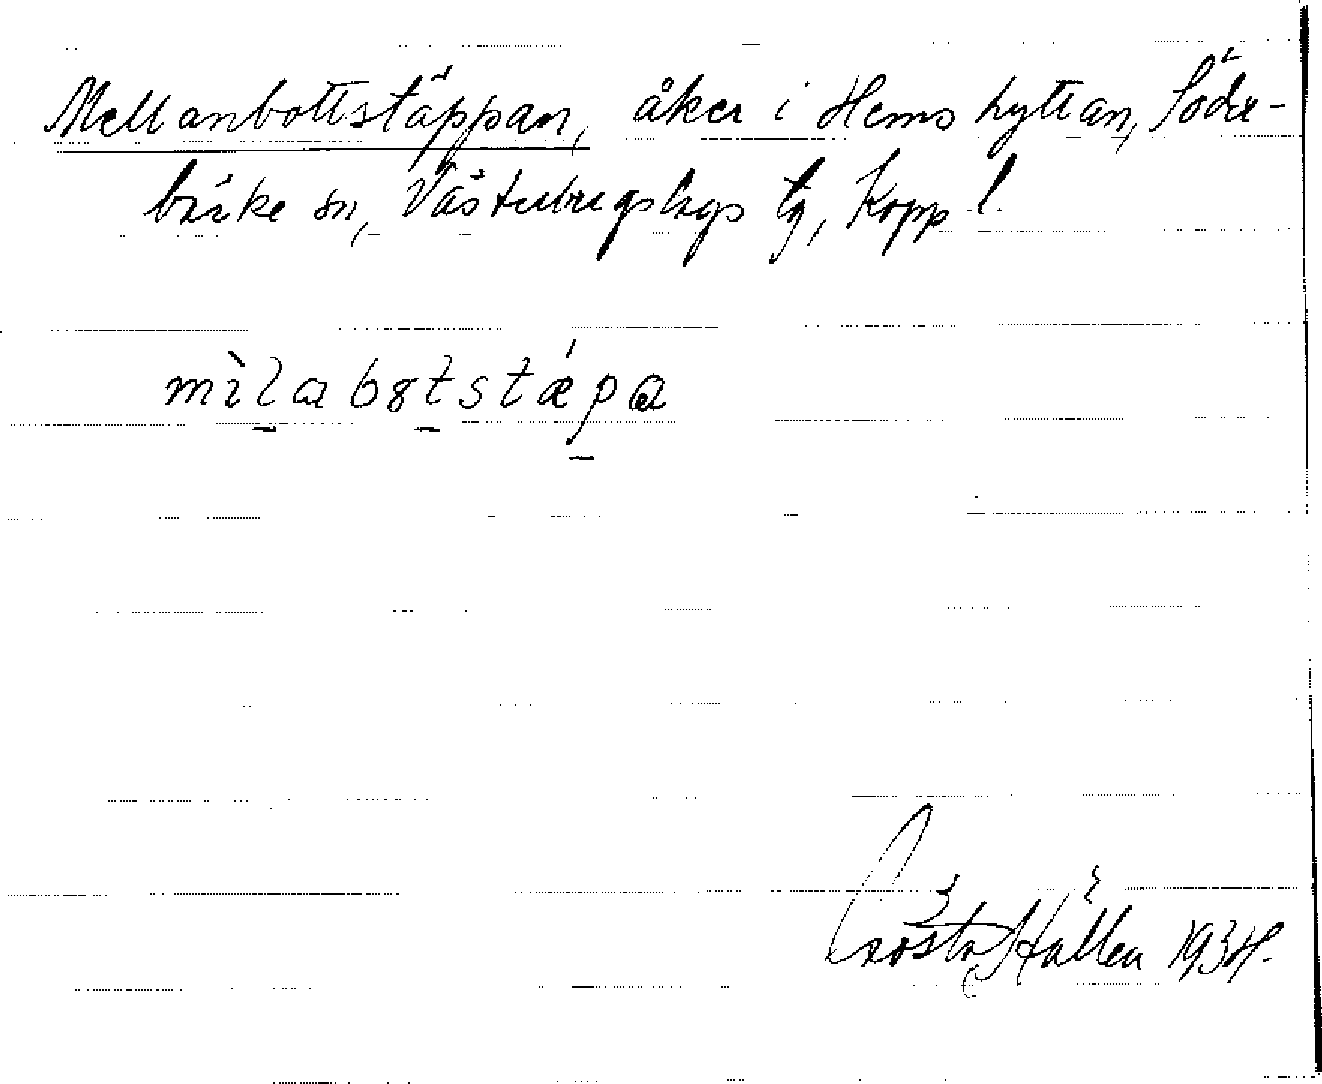 Mellanbottstäppan, åker i Hemshyttan, Söder-
bärke sn, Västerbergslags tg, Kopp l.
mìlabɞtstǽpa
Gösta Hållén 1934.